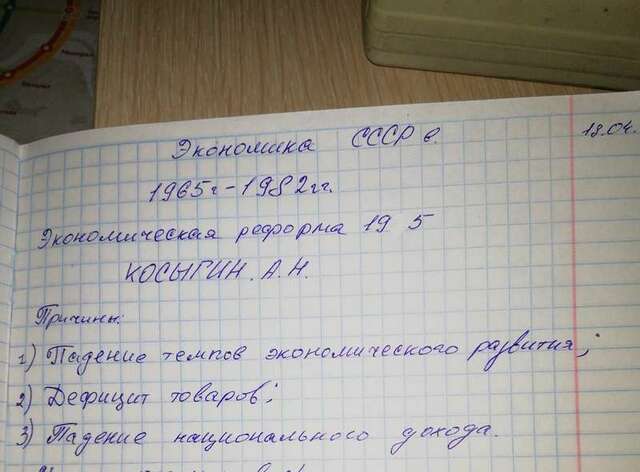 Экономика СССР в. 18.04.
1965г-1982гг.
Экономическая реформа 19 5
КОСЫГИН. А.Н.
Причины:
1) Падение темпов экономического развития;
2) Дефицит товаров;
3) Падение национального дохода.